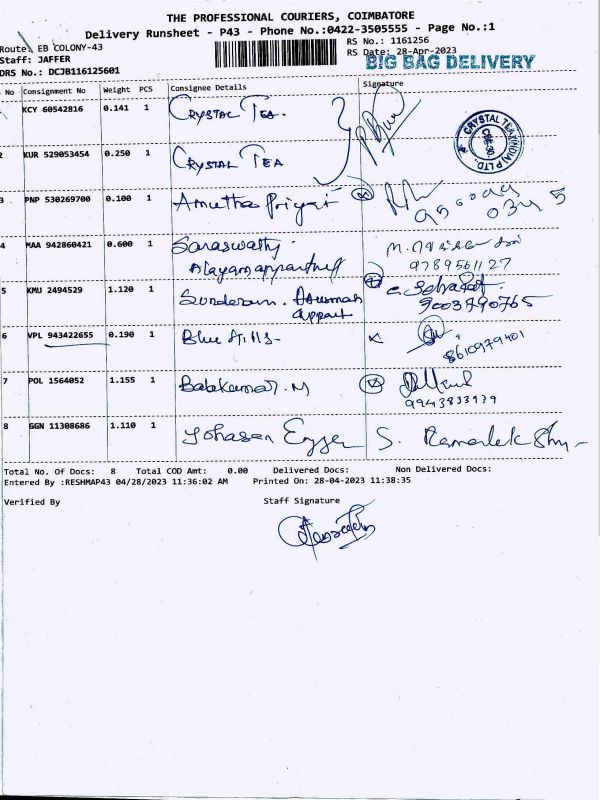 THE PROFESSIONAL COURIERS, COIMBATORE
Delivery Runsheet - P43 - Phone No.:0422-3505555 - Page No.:1
Route, EB COLONY-43
RS No.: 1161256
Staff: JAFFER
RS Date: 28-Apr-2023
DRS No.: DCJB116125601
BIG BAG DELIVERY
No Consignment No Weight PCS Consignee Details Signature
KCY 60542816 0.141 1 Crystal Tea.
CRYSTAL TEA (INDIA) P LTD.
2 KUR 529053454 0.250 1 Crystal Tea
3 PNP 530269700 0.100 1 Amutha Priya
4 MAA 942860421 0.600 1 Saraswathy
9789561127
5 KMU 2494529 1.120 1 Sunderam.
Appart
9003790765
6 VPL 943422655 0.190 1 Blue Hills
8610979401
7 POL 1564052 1.155 1 Balakumar. M
9943833939
8 GGN 11308686 1.110 1 S.
Total No. Of Docs: 8 Total COD Amt: 0.00 Delivered Docs: Non Delivered Docs:
Entered By :RESHMAP43 04/28/2023 11:36:02 AM Printed On: 28-04-2023 11:38:35
Verified By Staff Signature